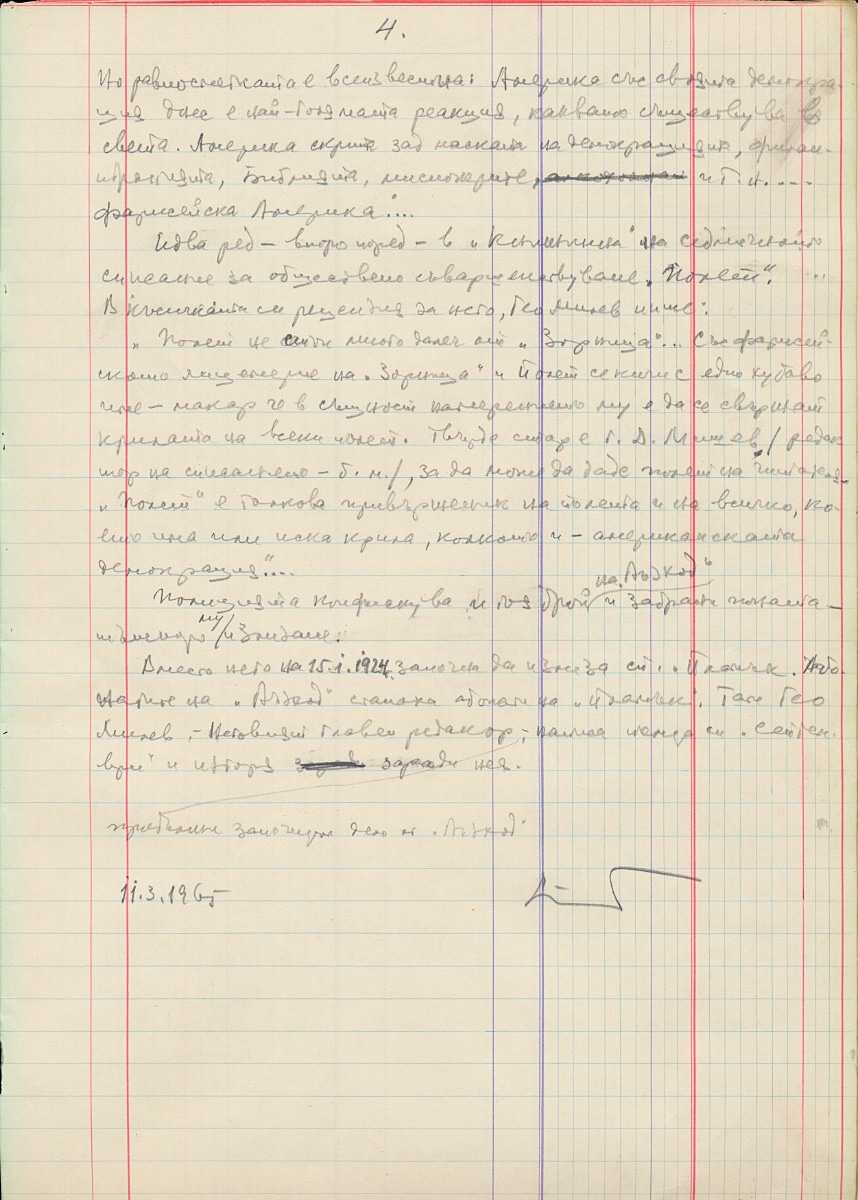 4.
Но равносметката е всеизвестна: Америка със своята демокра-
ция днес е най-голямата реакция, каквато съществува в
света. Америка скрита зад маската на демокрацията, филан-
тропията, Библията, мисионерите, и т. н. ....
фарисейска Америка"...
Идва ред – второ поред – в "на седмичното
списание за обществено съвършенствуване "Полет". ...
В късичката си рецензия за него, Гео Милев пише:
" Полет не стои много далеч от "Зорница"... Със фарисей-
ското лицемерие на "Зорница" и Полет се кичи с едно хубаво
име – макар че в същност намерението му е да се свържат
крилата на всеки полет. Твърде стар е г. Д. Мишев / редак
тор на списанието – б. м./, за да може да даде полет на читателя.
"Полет" е толкова привърженик на полета и на всичко, ко-
ето има или иска крила, колкото и – американската
демокрация"...
Полицията конфискува и тоя брой на "Възход" и забрани
му/ издаване.
Вместо него на 15.I.1924 започна да излиза сп. "Пламък". Або-
натите на "Възход" станаха абонати на "Пламък". Там Гео
Милев, – неговият главен редактор, – написа поемата си "Септем-
ври" и изгоря заради нея.
започнатото дело от "Възход"
11.3.1965